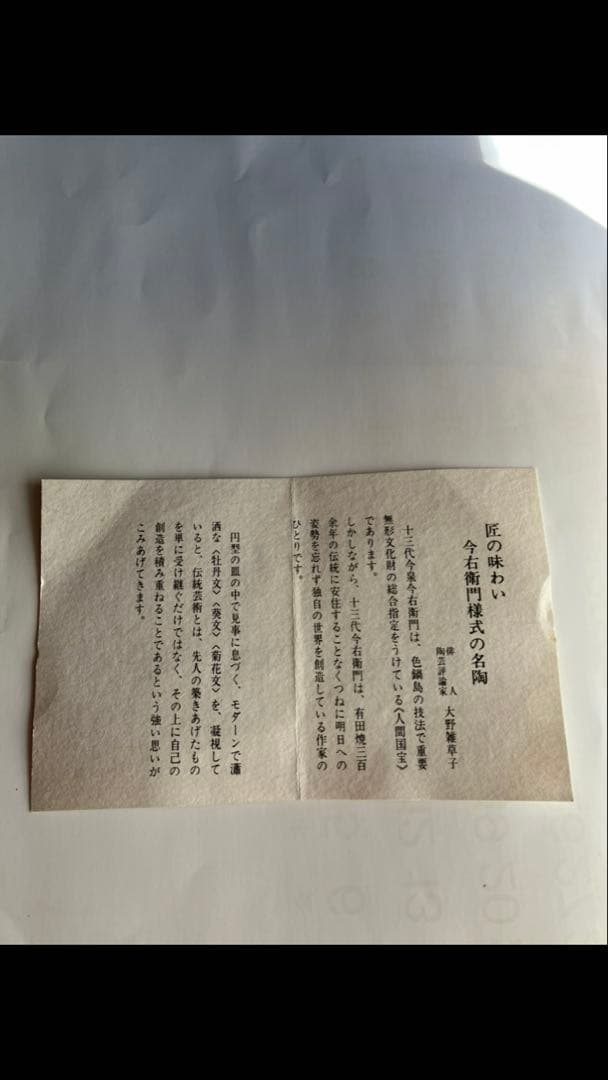 匠の味わい
今右衛門様式の名陶
俳人
陶芸評論家
大野雑草子
十三代今泉今右衛門は、色鍋島の技法で重要
無形文化財の総合指定をうけている《人間国宝》
であります。
しかしながら、十三代今右衛門は、有田焼三百
余年の伝統に安住することなくつねに明日への
姿勢を忘れず独自の世界を創造している作家の
ひとりです。
円型の皿の中で見事に息づく、モダーンで瀟
洒な〈牡丹文〉〈葵文〉〈菊花文〉を、凝視して
いると、伝統芸術とは、先人の築きあげたもの
を単に受け継ぐだけではなく、その上に自己の
創造を積み重ねることであるという強い思いが
こみあげてきます。